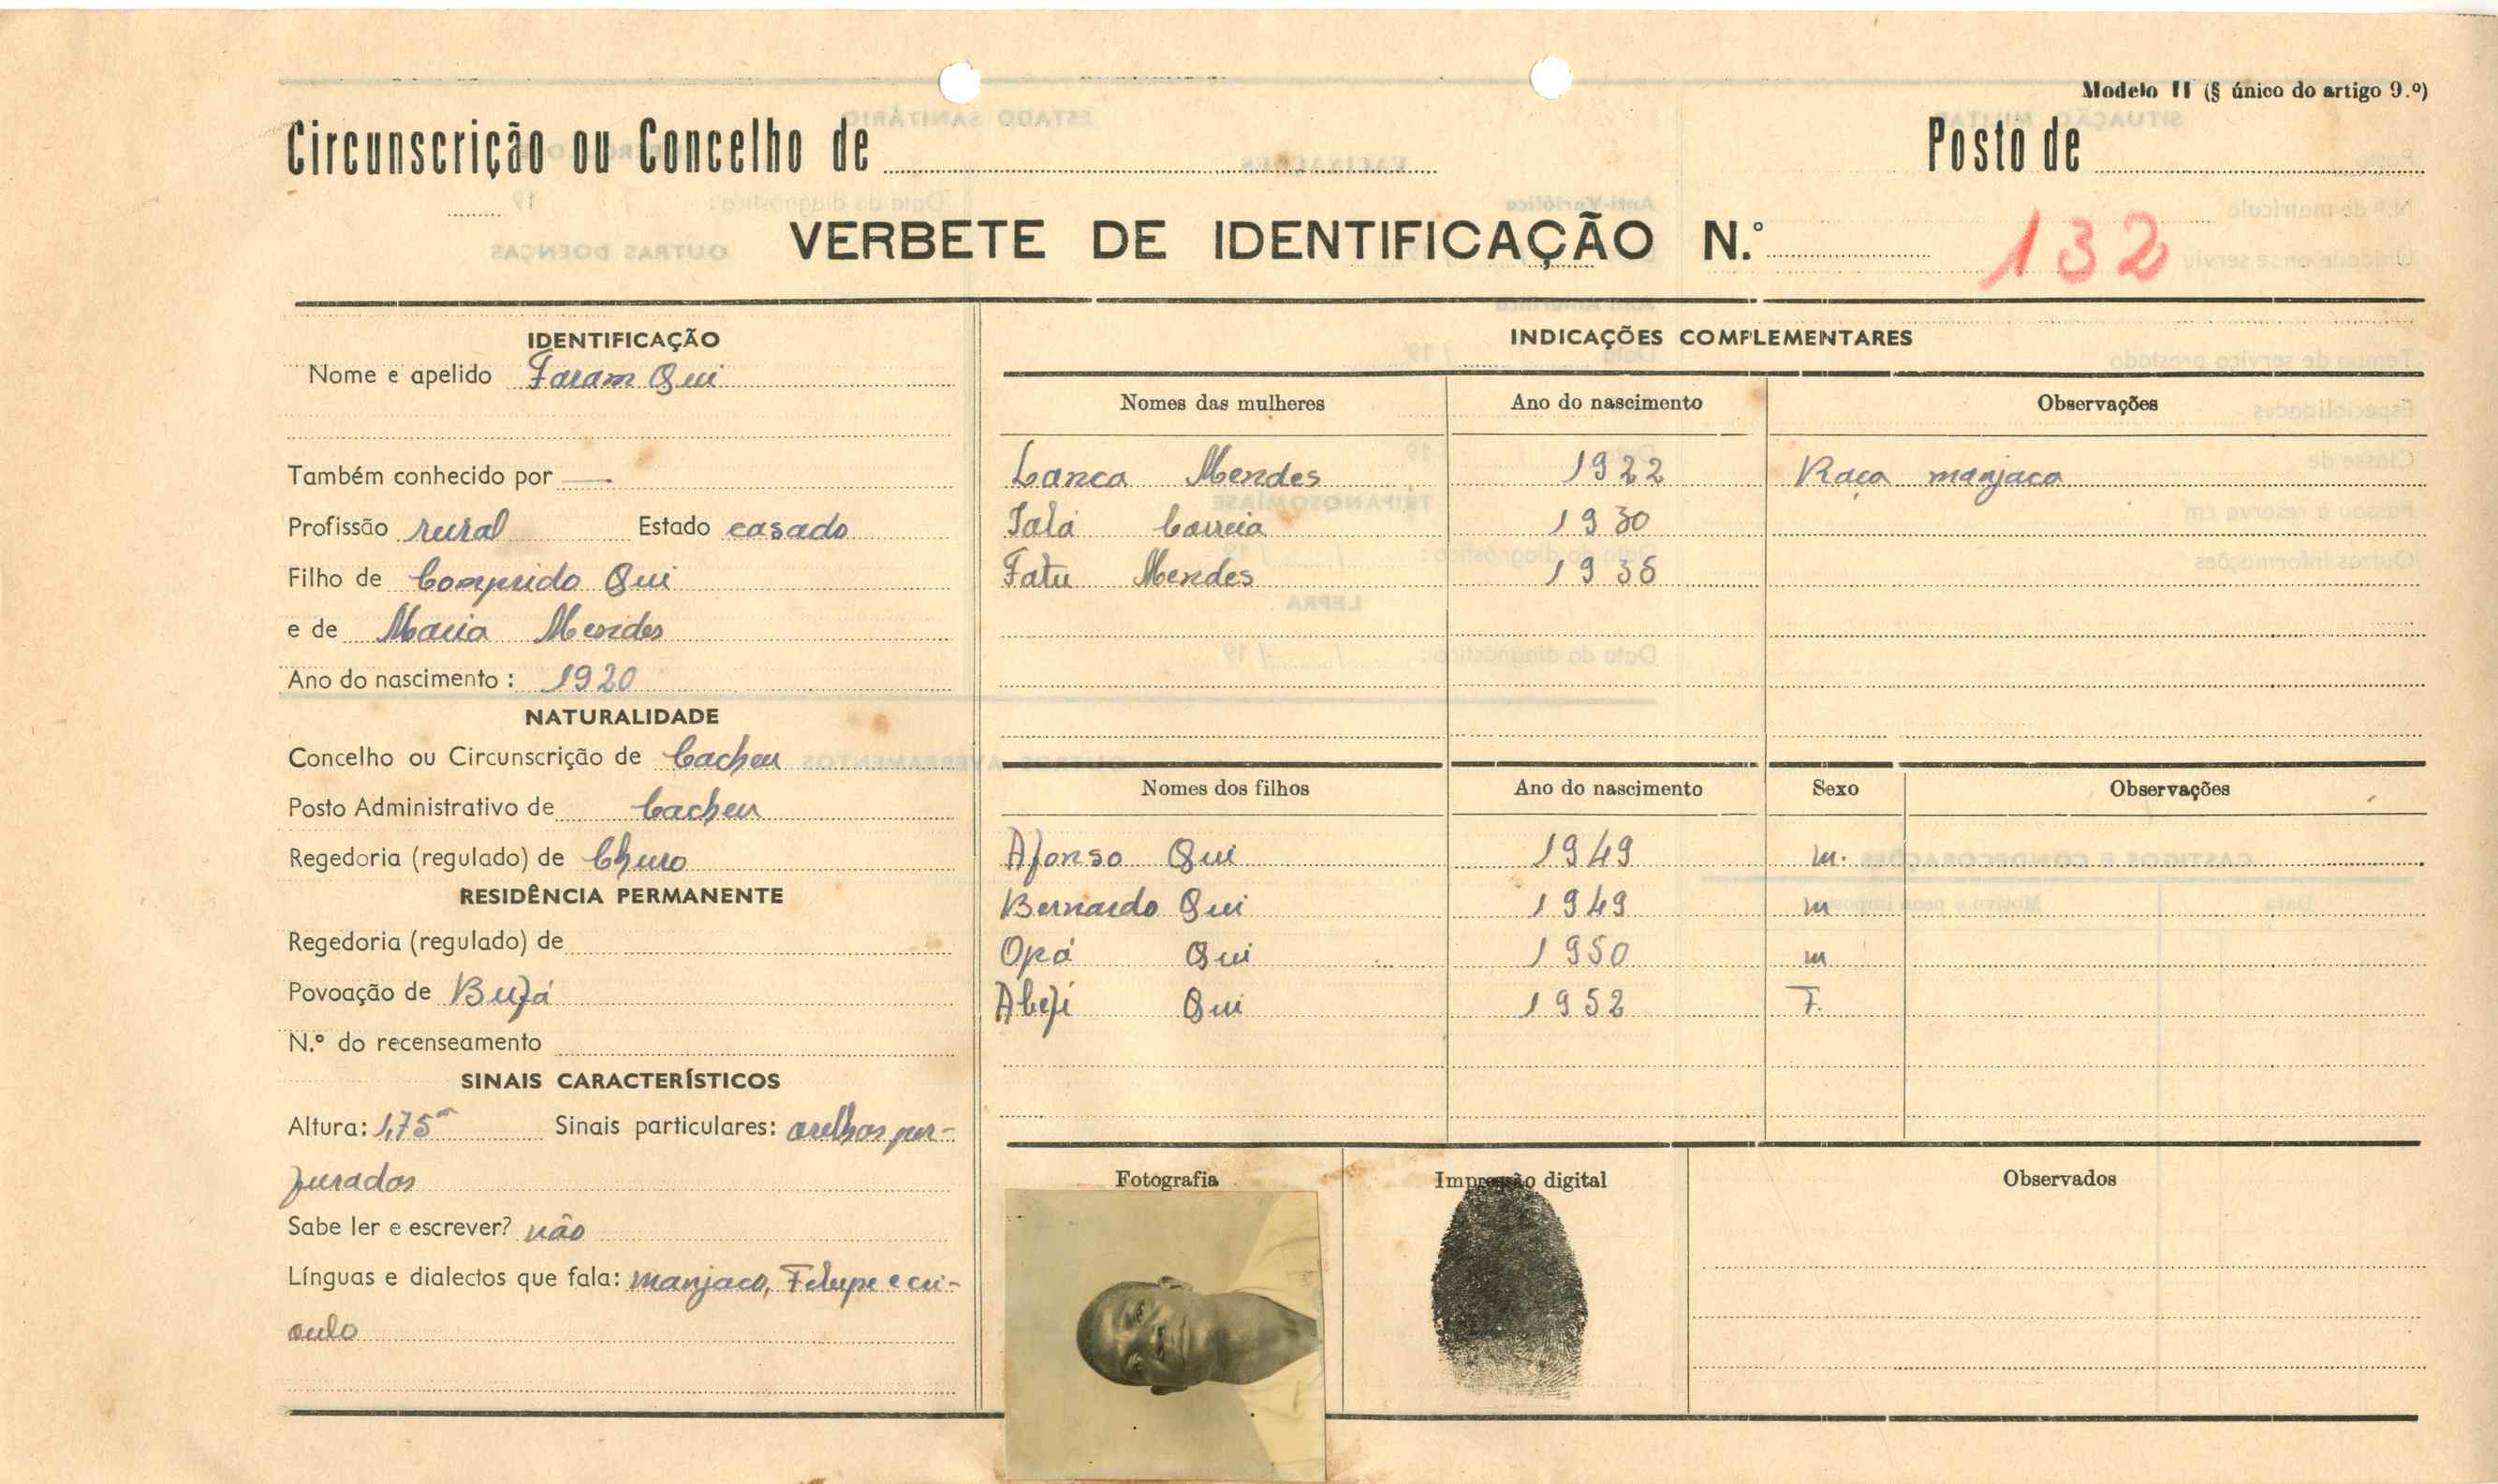 Modelo II (§ único do artigo 9.º)
Circunscrição ou Concelho de
Posto de
VERBETE DE IDENTIFICAÇÃO N.º 132
IDENTIFICAÇÃO
Nome e apelido Faram Qui
Também conhecido por —
Profissão rural Estado casado
Filho de Comprido Qui
e de Maria Mendes
Ano do nascimento : 1920
NATURALIDADE
Concelho ou Circunscrição de Cacheu
Posto Administrativo de Cacheu
Regedoria (regulado) de Churo
RESIDÊNCIA PERMANENTE
Regedoria (regulado) de
Povoação de
N.º do recenseamento
SINAIS CARACTERÍSTICOS
Altura: 1,75m Sinais particulares: orelhas per-
furados
Sabe ler e escrever? não
Línguas e dialectos que fala: manjaco, Felupe e cri-
oulo
INDICAÇÕES COMPLEMENTARES
Nomes das mulheres Ano do nascimento Observações
Lanca Mendes 1922 Raça manjaca
Correia 1930
Fatu Mendes
Nomes dos filhos Ano do nascimento Sexo Observações
Afonso Qui 1949 m.
Bernardo Qui 1949 m
Opá Qui 1950 m
Qui 1952 F.
Fotografia Impressão digital Observados